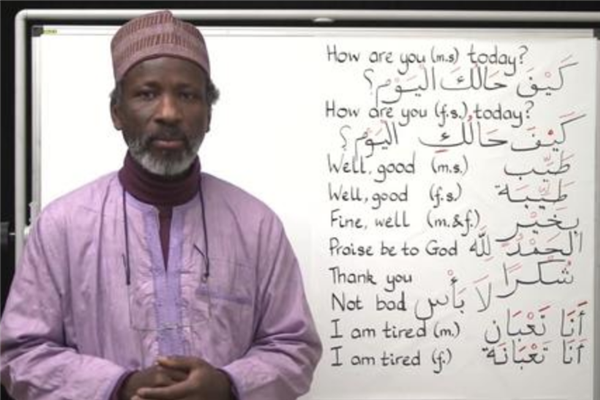 How are you (m.s) today?
كَيْفَ حَالُكَ الْيَوْمَ؟
How are you (f.s.) today?
كَيْفَ حَالُكِ الْيَوْمَ؟
Well, good (m.s.) طَيِّب
Well, good (f.s) طَيِّبَة
Fine, well (m.&f.) بِخَيْر
Praise be to God الْحَمْدُ لِلَّه
Thank you شُكْرًا
Not bad لَا بَأْس
I am tired (m.) أَنَا تَعْبَان
I am tired (f.) أَنَا تَعْبَانَة